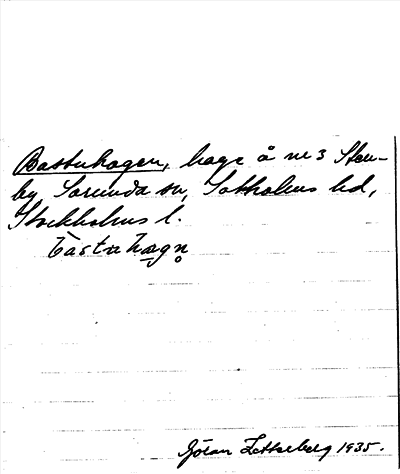 Bastuhagen, hage å nr 3 Sten-
by Sorunda sn, Sotholms hd,
Stockholms l.
bàstuhagn̥
Göran Zetterberg 1935.